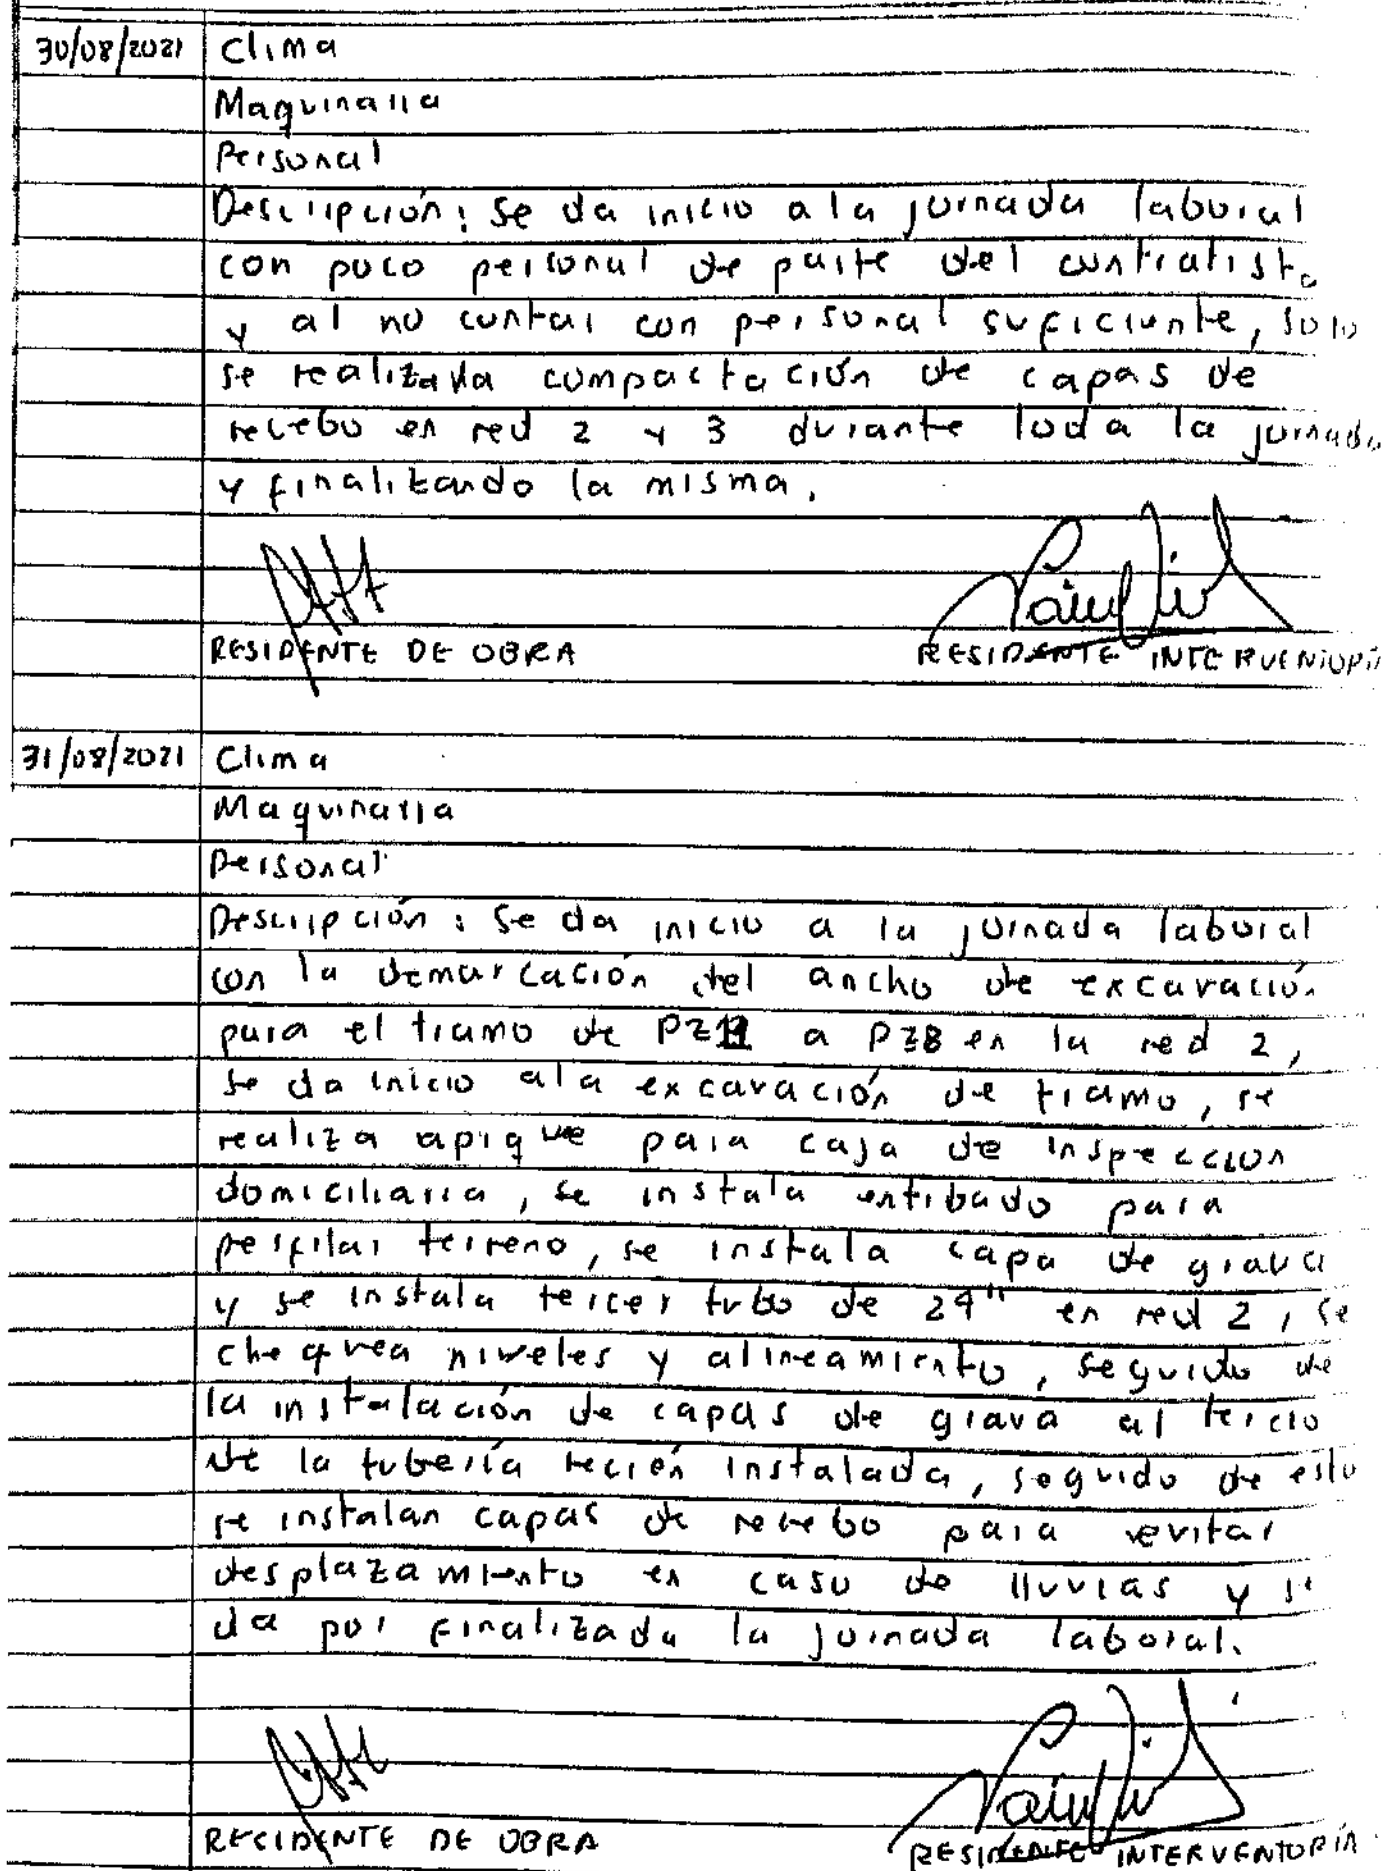 30/08/2021 Clima
Maquinaria
Personal
Descripción: Se da inicio a la jornada laboral
con poco personal de parte del contratista
y al no contar con personal suficiente, solo
se realizada compactación de capas de
recebo en red 2 y 3 durante toda la jornada
y finalizando la misma.
RESIDENTE DE OBRA RESIDENTE INTERVENTORIA
31/08/2021 Clima
Maquinaria
Personal
Descripción: Se da inicio a la jornada laboral
con la demarcación del ancho de excavación
para el tramo de PZ a PZ8 en la red 2,
se da inicio a la excavación de tramo, se
realiza apique para caja de inspeccion
domiciliaria, se instala entibado para
perfilar terreno, se instala capa de grava
y se instala tercer tubo de 24" en red 2, se
chequea niveles y alineamiento, seguido de
la instalación de capas de grava al tercio
de la tubería recién instalada, seguido de esto
se instalan capas de recebo para evitar
desplazamiento en caso de lluvias y se
da por finalizada la jornada laboral.
RESIDENTE DE OBRA RESIDENTE INTERVENTORIA